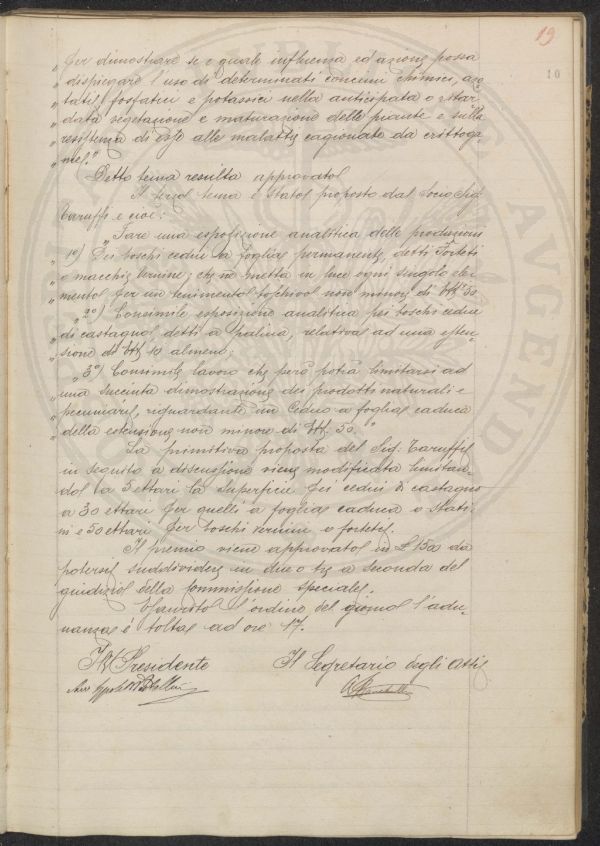 19
10
" Per dimostrare se e quale influenza ed azione possa
" dispiegare l'uso di determinati concimi chimici, azo
" tati, fosfatici e potassici nella anticipata o ritar
" data vegetazione e maturazione delle piante e sulla
" resistenza di esse alle malattie cagionate da crittoga
" me."
Detto tema resulta approvato.
Il terzo tema è stato proposto dal Socio Sig.
Taruffi e cioè:
" Fare una esposizione analitica delle produzioni
" 1º) Dei boschi cedui a foglia permanente, detti Forteti
" o macchie vernine; che ne metta in luce ogni singolo ele-
" mento per un tenimento boschivo non minore di Ett. 50.
" 2º) Consimile esposizione analitica pei boschi cedui
" di castagno, detti a palina, relativa ad una esten-
" sione di Ett. 10 almeno;
" 3º) Consimile lavoro che però potrà limitarsi ad
" una succinta dimostrazione dei prodotti naturali e
" pecuniari, riguardante un Ceduo a foglia caduca
" della estensione non minore di Ett. 50."
La primitiva proposta del Sig. Taruffi
in seguito a discussione viene modificata limitan-
do a 5 ettari la superficie pei cedui di castagno
a 30 ettari per quelli a foglia caduca o stati-
ni e 50 ettari per boschi vernini o forteti.
Il premio viene approvato in £ 150 da
potersi suddividere in due o tre a seconda del
giudizio della Commissione speciale.
Esaurito l'ordine del giorno l'adu-
nanza è tolta ad ore 17.
Il Presidente
Il Segretario degli Atti